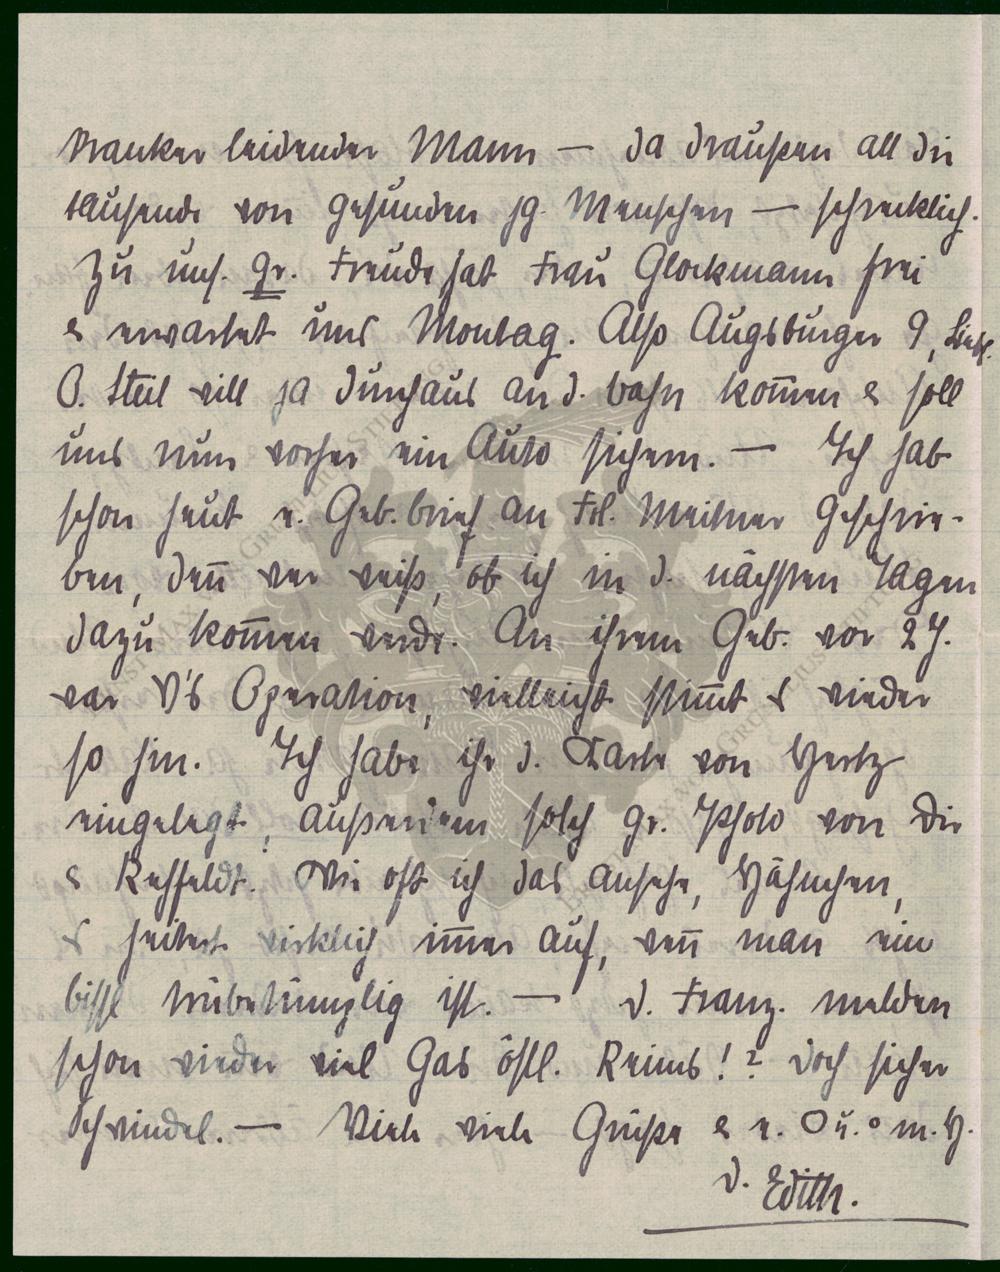 kranker leidender Mann — da draußen all die
tausende von gesunden jg. Menschen — schrecklich.
Zu uns. gr. Freude hat Frau Glockmann frei
& erwartet uns Montag. Also Augsburger 9, Liebs.
O. Stiel will ja durchaus an d. bahn kom̄en & soll
uns nun vorher ein Auto sichern. — Ich hab
schon heut e. Geb.brief an Frl. Meitner geschrie-
ben, den̄ wer weiß, ob ich in d. nächsten Tagen
dazu kom̄en werde. An ihrem Geb. vor 2 J.
war V's Operation, vielleicht stim̄t & wieder
so hin. Ich habe ihr d. Karte von Hertz
eingelegt, außerdem solch gr. Photo von Dir
& Rehfeldt. Wie oft ich das ansehe, Hähnchen,
& heitert wirklich im̄er auf, wen̄ man ein
bissl trübetümplig ist. — D. Franz. melden
schon wieder viel Gas östl. Reims!? Doch sicher
Schwindel. — Viele viele Grüße & e. O u. o m. H.
D. Edith.